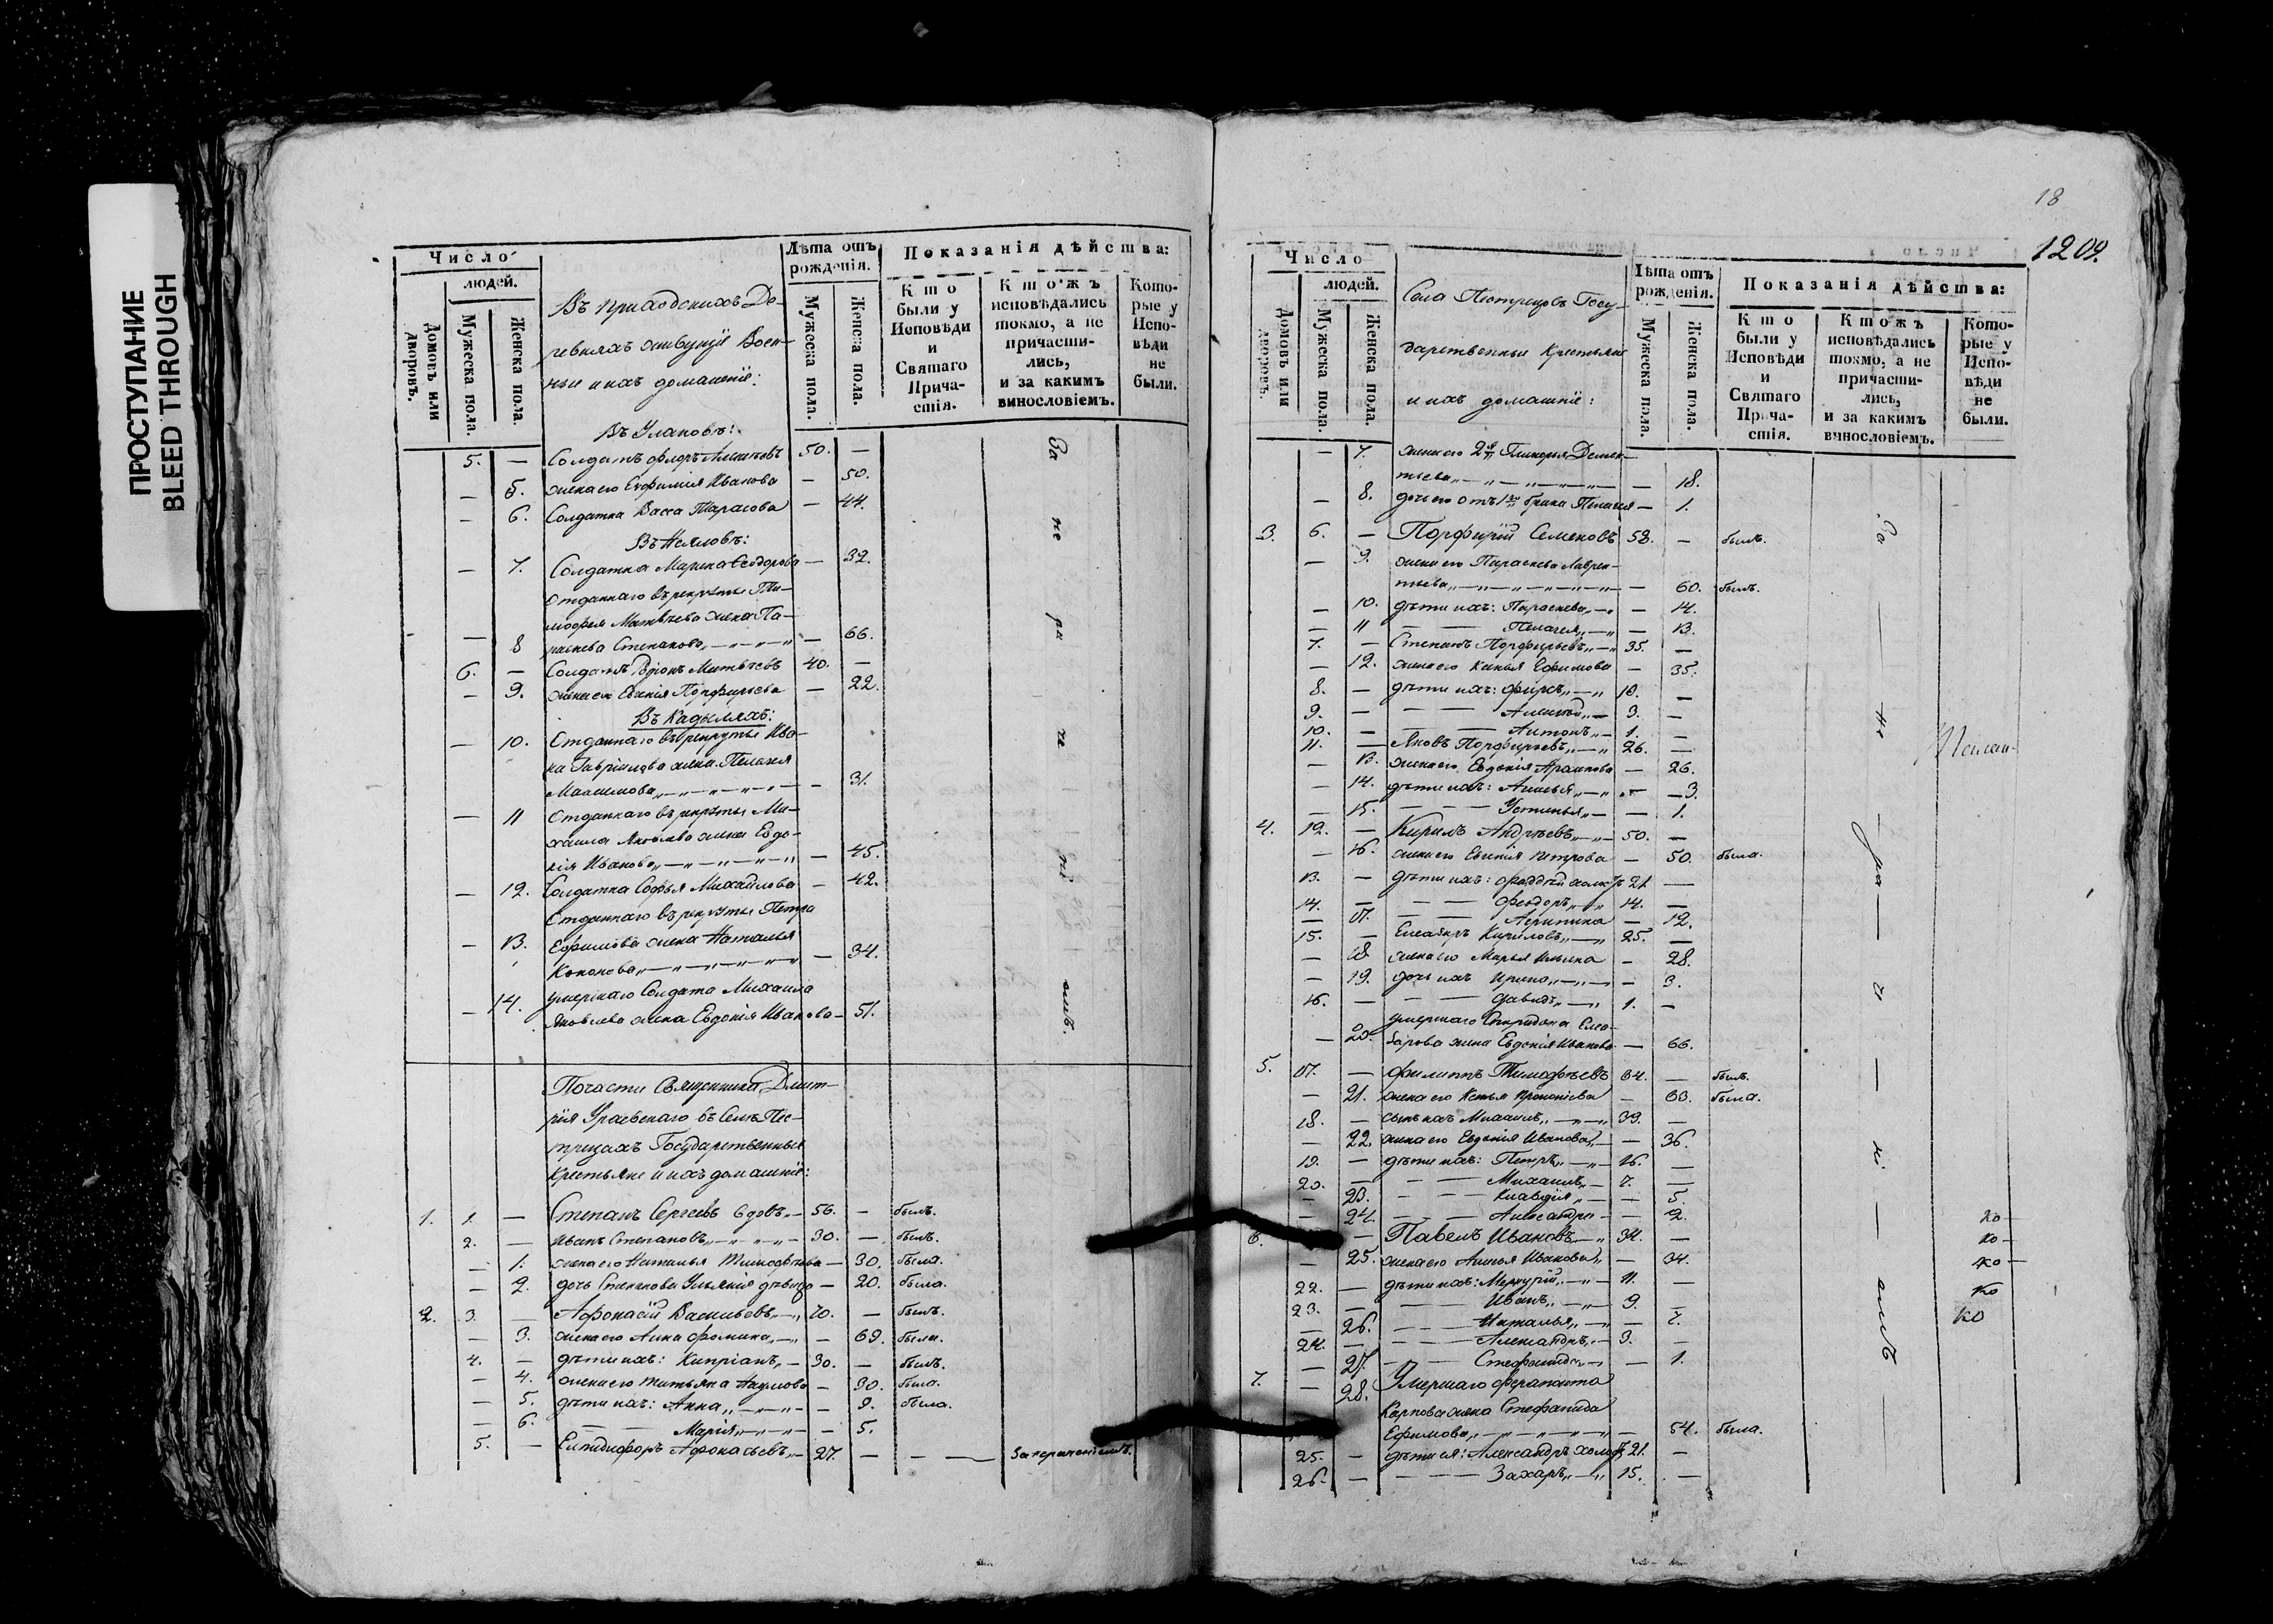 ПРОСТУПАНИЕ
BLEED THROUGH
Число
людей.
Домовъ или дворовъ.
Мужеска пола.
Женска пола.
Въ приходскихъ Де-
ревняхъ живущіе Воен-
ные и ихъ домашніе:
Лѣта отъ рожденія.
Мужеска пола.
Женска пола.
Показанія дѣйства:
Кто были у Исповѣди и Святаго Причастія.
Ктожъ исповѣдались токмо, а не причастились, и за какимъ винословіемъ.
Которые у Исповѣди не были.
Въ Улановѣ:
5. — Солдатъ Флоръ Алексѣевъ 50. —
— 5. жена его Евфимія Иванова — 50.
— 6. Солдатка Васса Тарасова — 44.
— 7. Солдатка Марина Ѳеодорова — 32.
Отданнаго въ рекруты Ти-
мофея Матвѣева жена Па-
— 8 раскева Степанова — 66.
6. — Солдатъ Родіонъ Матвѣевъ 40. —
— 9. жена его Евгенія Порфирьева — 22.
Въ Кадыляхъ:
— 10. Отданнаго въ рекруты Ива-
на Гавріилова жена Пелагея
Максимова — 31.
— 11 Отданнаго въ рекруты Ми-
хаила Яковлева жена Евдо-
кія Иванова — 45.
— 12. Солдатка Софья Михайлова — 42.
Отданнаго въ рекруты Петра
— 13. Ефимова жена Наталья
Кононова — 34.
умершаго Солдата Михаила
— 14. Яковлева жена Евдокія Иванова — 51.
За не ра че ні емъ.
По части Священника Дмит-
рія Ураевскаго въ Селѣ Пес-
трецахъ Государственные
Крестьяне и ихъ домашніе:
1. 1. — Степанъ Сергѣевъ вдовъ 56. — былъ.
2. — Иванъ Степановъ 30. — былъ.
— 1. жена его Наталья Тимофѣева — 30. была.
— 2. дочь Степанова Ульянія дѣвица — 20. была.
2. 3. — Афонасій Васильевъ 70. — былъ.
— 3. жена его Анна Фомина — 69. была.
4. — дѣти ихъ: Кипріанъ 30. — былъ.
— 4. жена его Татьяна Наумова — 30. была.
— 5. дѣти ихъ: Анна — 9. была.
— 6. — Марія — 5.
5. — Елпидифоръ Афонасьевъ 27. — — За нераченіемъ.
18
1209.
Число
людей.
Домовъ или дворовъ.
Мужеска пола.
Женска пола.
Села Пестрецовъ Госу-
дарственные Крестьяне
и ихъ домашніе:
Лѣта отъ рожденія.
Мужеска пола.
Женска пола.
Показанія дѣйства:
Кто были у Исповѣди и Святаго Причастія.
Ктожъ исповѣдались токмо, а не причастились, и за какимъ винословіемъ.
Которые у Исповѣди не были.
— 7. жена его 2я Гликерья Демен-
тьева — 18.
— 8. дочь его отъ 1го брака Пелагея — 1.
3. 6. — Порфирій Семеновъ 58. — былъ.
— 9. жена его Параскева Лаврен-
тьева — 60. былъ.
— 10. дѣти ихъ: Параскева — 14.
— 11 — Пелагея — 13.
7. — Степанъ Порфирьевъ 35. —
— 12. жена его Ксенья Ефимова — 35.
8. — дѣти ихъ: Фирсъ 10. —
9. — Алексѣй 3. —
10. — Антонъ 1. —
11. — Яковъ Порфирьевъ 26. —
— 13. жена его Евдокія — 26.
— 14. дѣти ихъ: Анисья — 3.
— 15. — Устинья — 1.
4. 12. — Кирилъ Андрѣевъ 50. —
— 16. жена его Евгенія Петрова — 50. была.
13. — дѣти ихъ: Фаддей холостъ 21 —
14. — Феодоръ 14. —
— 17. — Агрипина — 12.
15. — Елеазаръ Кириловъ 25. —
— 18 жена его Марья Ильина — 28.
— 19. дочь ихъ Ирина — 3.
16. — Давидъ 1. —
умершаго Спиридона Елеа-
— 20. зарова жена Евдокія Иванова — 66.
5. 17. — Филиппъ Тимофѣевъ 64. — былъ.
— 21. жена его Ксенья Прокопіева — 63. была.
18. — сынъ ихъ Михаилъ 39. —
— 22. жена его Евдокія Иванова — 36.
19. — дѣти ихъ: Петръ 16. —
20. — Михаилъ 7. —
— 23. — Клавдія — 5.
— 24. — Александра — 2.
6. — Павелъ Ивановъ 34. —
— 25. жена его Анисья Иванова — 34.
22. — дѣти ихъ: Меркурій 11. —
23. — Иванъ 9. —
— 26. — Наталья — 7.
24. — Александръ 3. —
— 27. — Стефанида — 1.
7. — 28. Умершаго Ферапонта
Карпова жена Стефанида
Ефимова — 54. была.
25. — дѣти ея: Александръ холостъ 21. —
26. — Захаръ 15. —
За — не — ра — че — ні — емъ